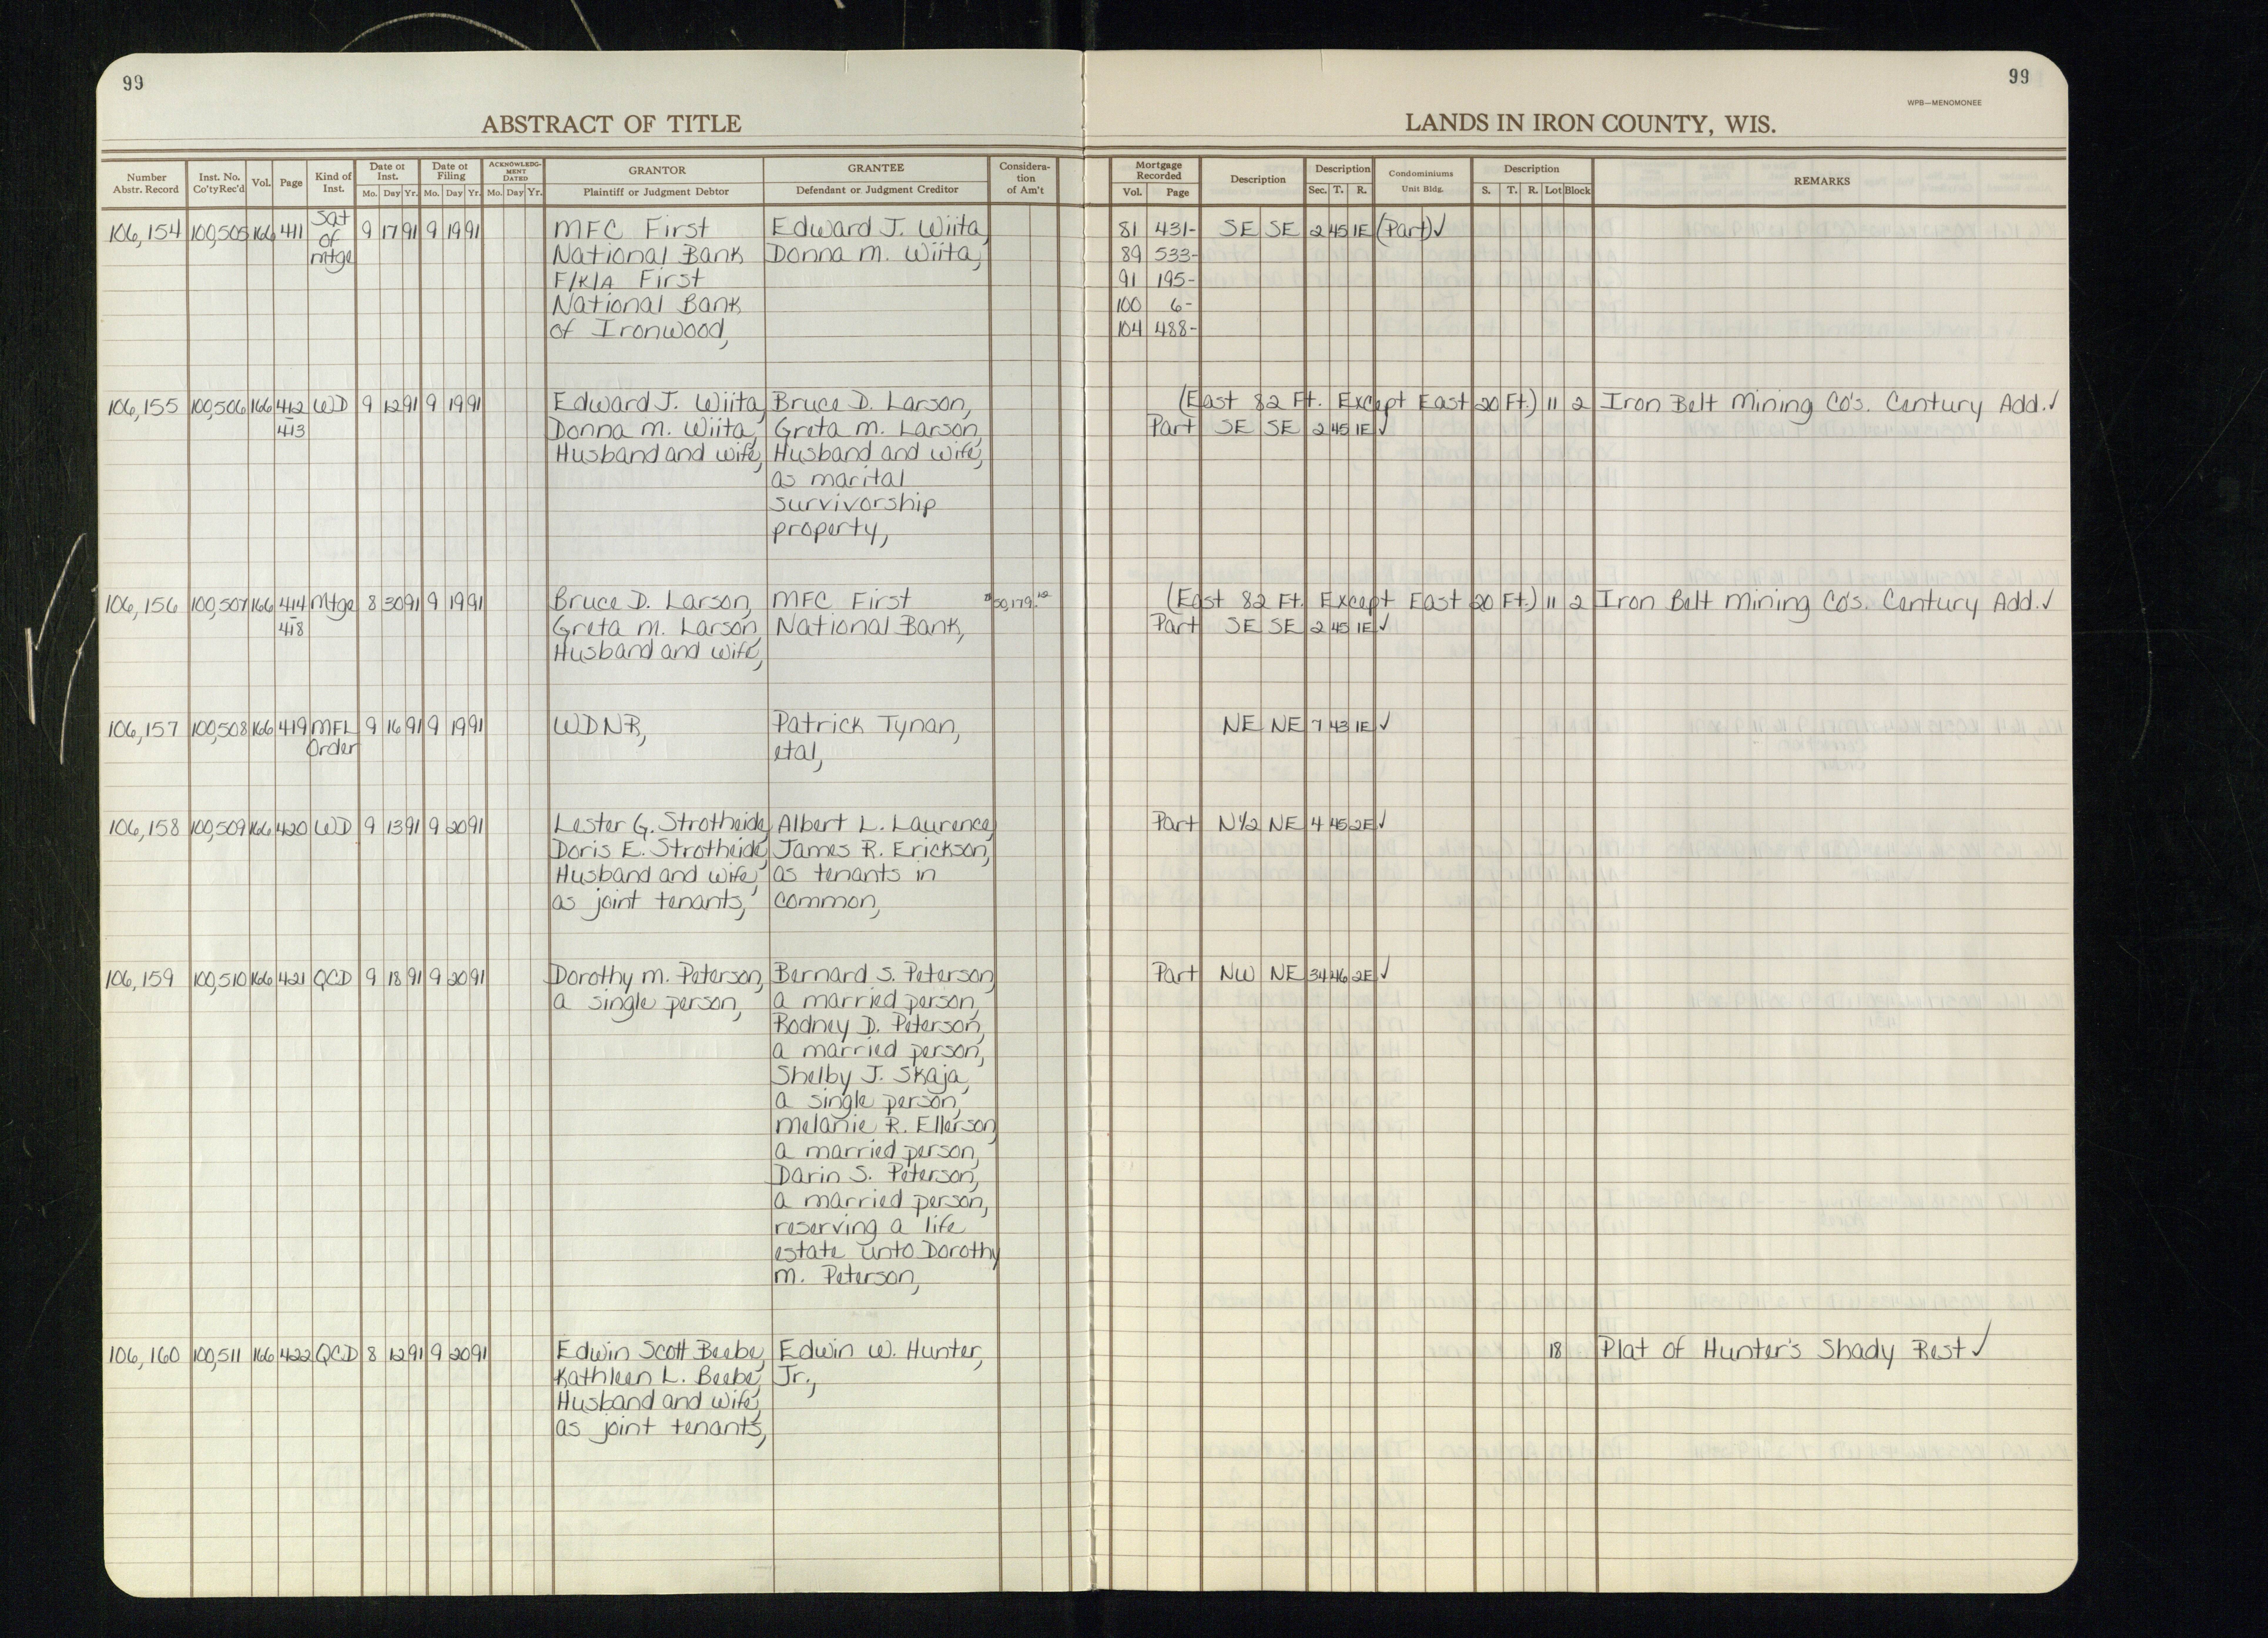 99
99
WPB—MENOMONEE
ABSTRACT OF TITLE
LANDS IN IRON COUNTY, WIS.
Number Abstr. Record
Inst. No. Co'ty Rec'd
Vol.
Page
Kind of Inst.
Date of Inst. Mo. Day Yr.
Date of Filing Mo. Day Yr.
ACKNOWLEDG-MENT DATED Mo. Day Yr.
GRANTOR Plaintiff or Judgment Debtor
GRANTEE Defendant or Judgment Creditor
Considera-tion of Am't
Mortgage Recorded Vol. Page
Description
Description Sec. T. R.
Condominiums Unit Bldg.
Description S. T. R. Lot Block
REMARKS
106,154 100,505 166 411 Sat of mtge 9 17 91 9 19 91 MFC First Edward J. Wiita, 81 431- SE SE 2 45 1E (Part) ✓
National Bank Donna M. Wiita, 89 533-
F/K/A First 91 195-
National Bank 100 6-
of Ironwood, 104 488-
106,155 100,506 166 412 WD 9 12 91 9 19 91 Edward J. Wiita, Bruce D. Larson, (East 82 Ft. Except East 20 Ft.) 11 2 Iron Belt Mining Co's. Century Add. ✓
- 413 Donna M. Wiita, Greta M. Larson, Part SE SE 2 45 1E ✓
Husband and wife, Husband and wife,
as marital
survivorship
property,
106,156 100,507 166 414 Mtge 8 30 91 9 19 91 Bruce D. Larson, MFC First 50,179.12 (East 82 Ft. Except East 20 Ft.) 11 2 Iron Belt Mining Co's. Century Add. ✓
- 418 Greta M. Larson, National Bank, Part SE SE 2 45 1E ✓
Husband and wife,
106,157 100,508 166 419 MFL 9 16 91 9 19 91 WDNR, Patrick Tynan, NE NE 7 43 1E ✓
Order etal,
106,158 100,509 166 420 WD 9 13 91 9 20 91 Lester G. Strotheide, Albert L. Laurence, Part N1/2 NE 4 45 2E ✓
Doris E. Strotheide, James R. Erickson,
Husband and wife, as tenants in
as joint tenants, common,
106,159 100,510 166 421 QCD 9 18 91 9 20 91 Dorothy M. Peterson, Bernard S. Peterson, Part NW NE 34 46 2E ✓
a single person, a married person,
Rodney D. Peterson,
a married person,
Shelby J. Skaja,
a single person,
Melanie R. Ellerson,
a married person,
Darin S. Peterson,
a married person,
reserving a life
estate unto Dorothy
M. Peterson,
106,160 100,511 166 422 QCD 8 12 91 9 20 91 Edwin Scott Beebe, Edwin W. Hunter, 18 Plat of Hunter's Shady Rest ✓
Kathleen L. Beebe, Jr.,
Husband and wife,
as joint tenants,